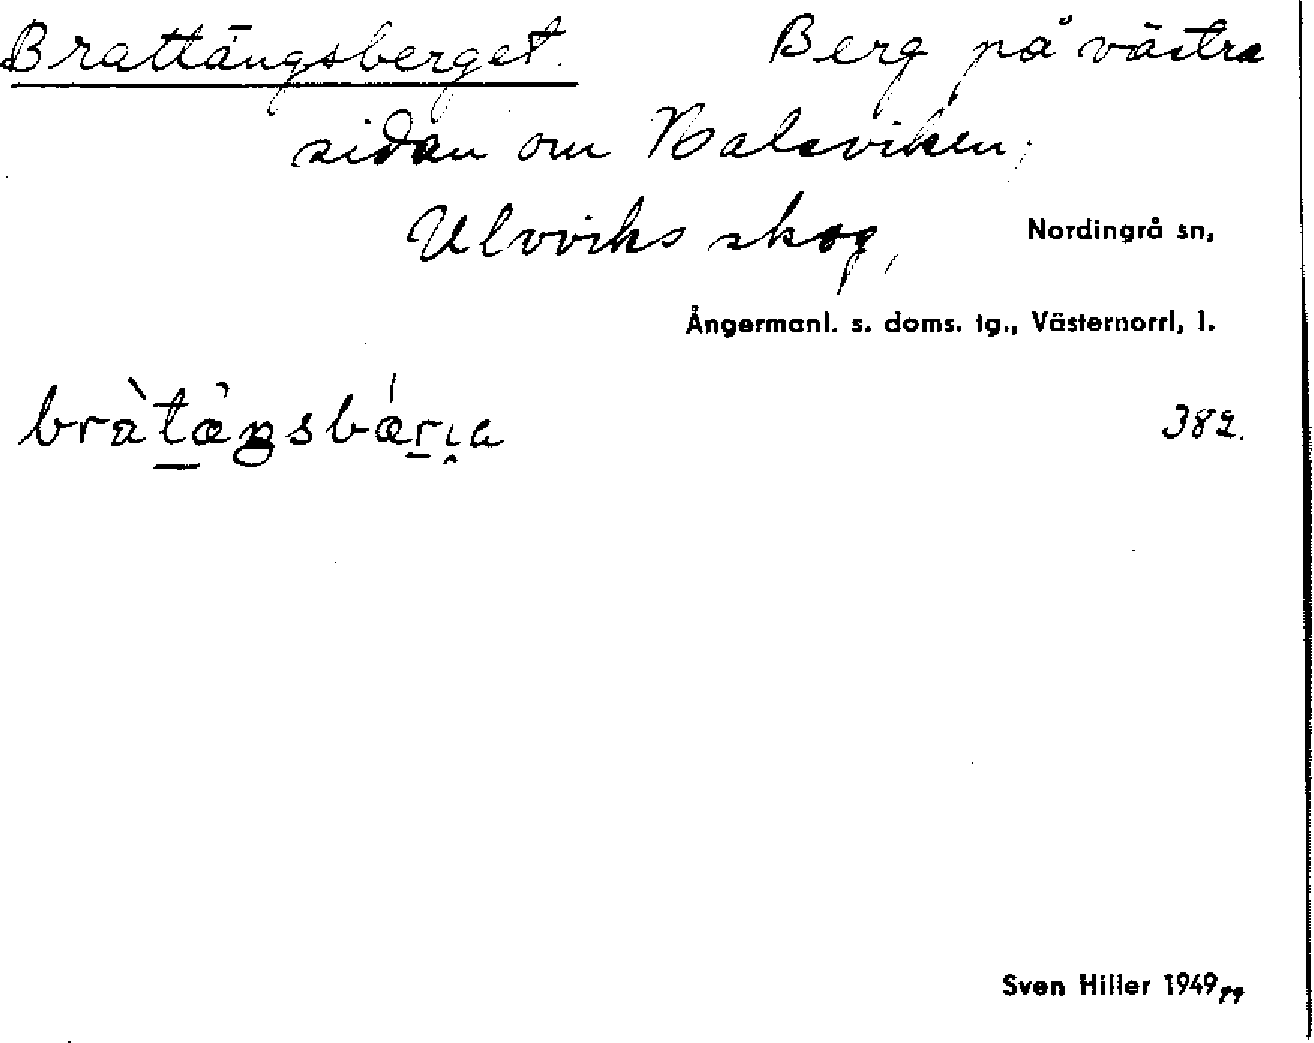 Brattängsberget. Berg på västra
sidan om Valsviken,
Ulvviks skog, Nordingrå sn,
Ångermanl. s. doms. tg., Västernorrl, l.
382.
Sven Hiller 1949